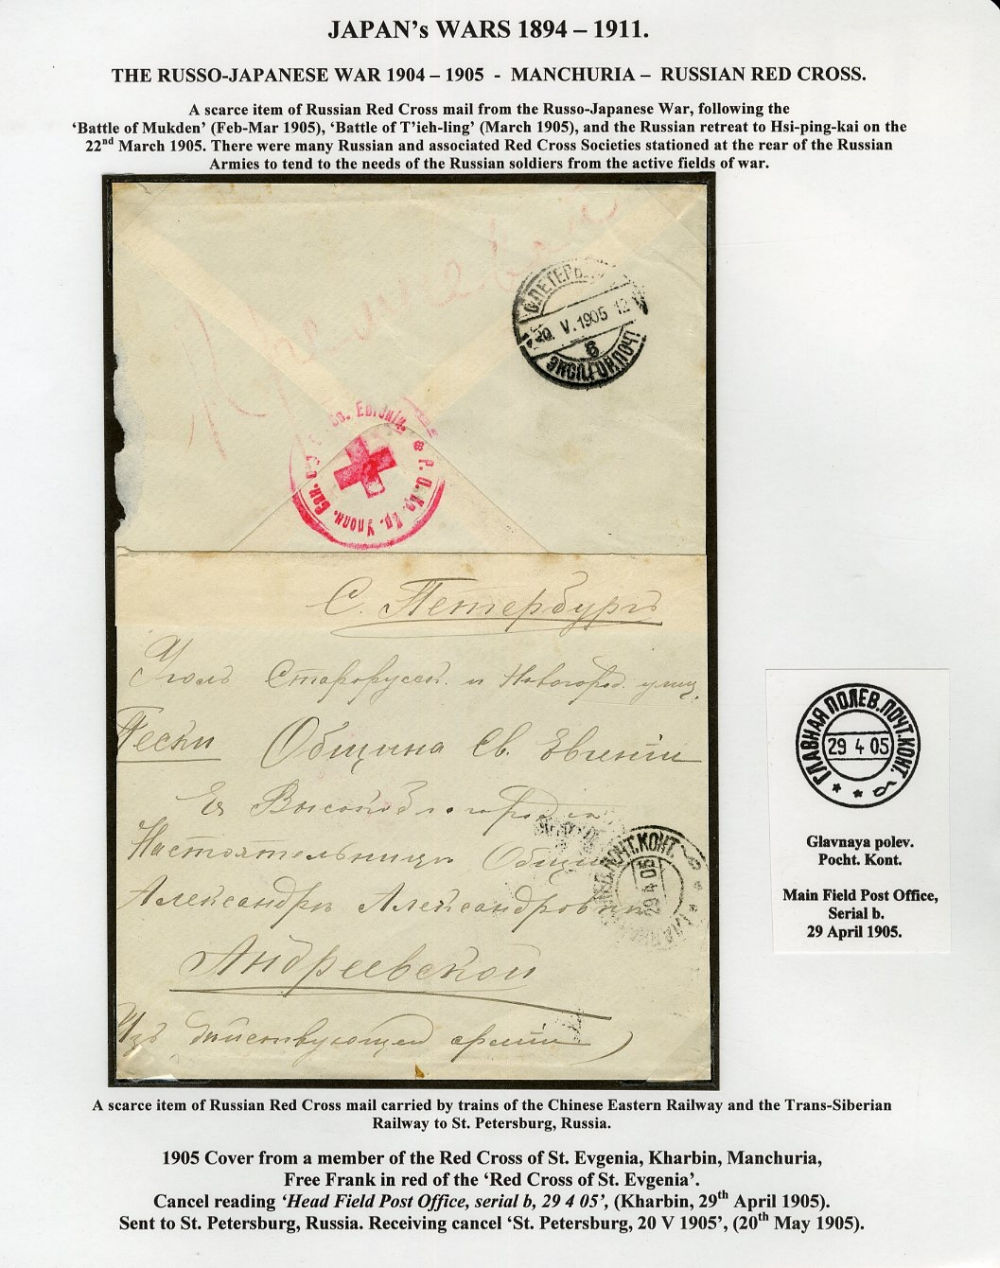 JAPAN's WARS 1894 – 1911.
THE RUSSO-JAPANESE WAR 1904 – 1905 - MANCHURIA – RUSSIAN RED CROSS.
A scarce item of Russian Red Cross mail from the Russo-Japanese War, following the
'Battle of Mukden' (Feb-Mar 1905), 'Battle of T'ieh-ling' (March 1905), and the Russian retreat to Hsi-ping-kai on the
22nd March 1905. There were many Russian and associated Red Cross Societies stationed at the rear of the Russian
Armies to tend to the needs of the Russian soldiers from the active fields of war.
С.ПЕТЕРБ
20 V.1905 12
В
ЭКСП.ГОР.ПОЧТ
Св. Евгенiи. Р. О. Кр. Кр. Уполн.
С. Петербургъ
Уголъ Старорусск. и Новогород. улиц.
Пески Община Св. Евгенiи
Ея Высокоблагородiю
Настоятельницѣ Общины
Александрѣ Александровнѣ
Андреевской
Изъ дѣйствующей армiи
ПОЧТ.КОНТ.
29 4 05
ГЛАВНАЯ ПОЛЕВ.ПОЧТ.КОНТ.
29 4 05
Glavnaya polev.
Pocht. Kont.
Main Field Post Office,
Serial b.
29 April 1905.
A scarce item of Russian Red Cross mail carried by trains of the Chinese Eastern Railway and the Trans-Siberian
Railway to St. Petersburg, Russia.
1905 Cover from a member of the Red Cross of St. Evgenia, Kharbin, Manchuria,
Free Frank in red of the 'Red Cross of St. Evgenia'.
Cancel reading 'Head Field Post Office, serial b, 29 4 05', (Kharbin, 29th April 1905).
Sent to St. Petersburg, Russia. Receiving cancel 'St. Petersburg, 20 V 1905', (20th May 1905).